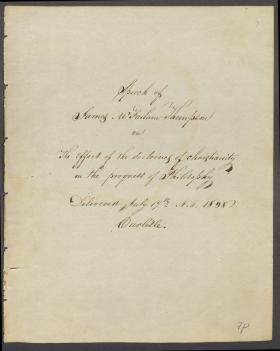 Speech of
James McFarlane Thompson
on
The effect of the doctrines of Christianity
on the progress of Philosophy
Delivered July 19th A.D. 1838
Carlisle.
7p